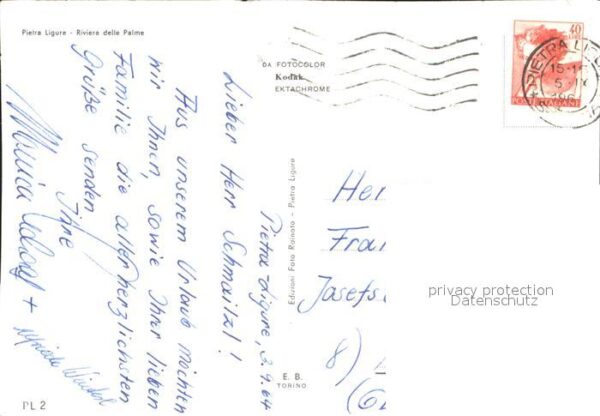 Pietra Ligure - Riviera delle Palme
DA FOTOCOLOR
Kodak
EKTACHROME
40
POSTE ITALIANE
PIETRA LIG
15-1
5 IX
196
Pietra-Ligure, 3.9.64
Lieber Herr Schmailzl!
Aus unserem Urlaub möchten
wir Ihnen, sowie Ihrer lieben
Familie die allerherzlichsten
Grüße senden
Ihre
+
Edizioni Foto Rainato - Pietra Ligure
E. B.
TORINO
Her
Fran
Josefs
8)
(6
privacy protection
Datenschutz
PL 2